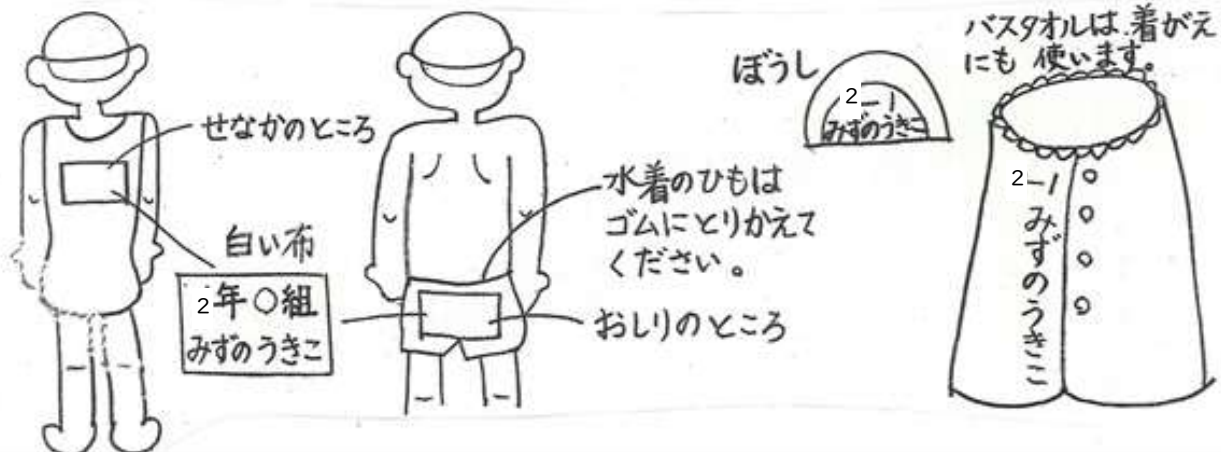 せなかのところ
白い布
2年○組
みずのうきこ
水着のひもは
ゴムにとりかえて
ください。
おしりのところ
ぼうし
2-1
みずのうきこ
バスタオルは、着がえ
にも使います。
2-1
みずのうきこ